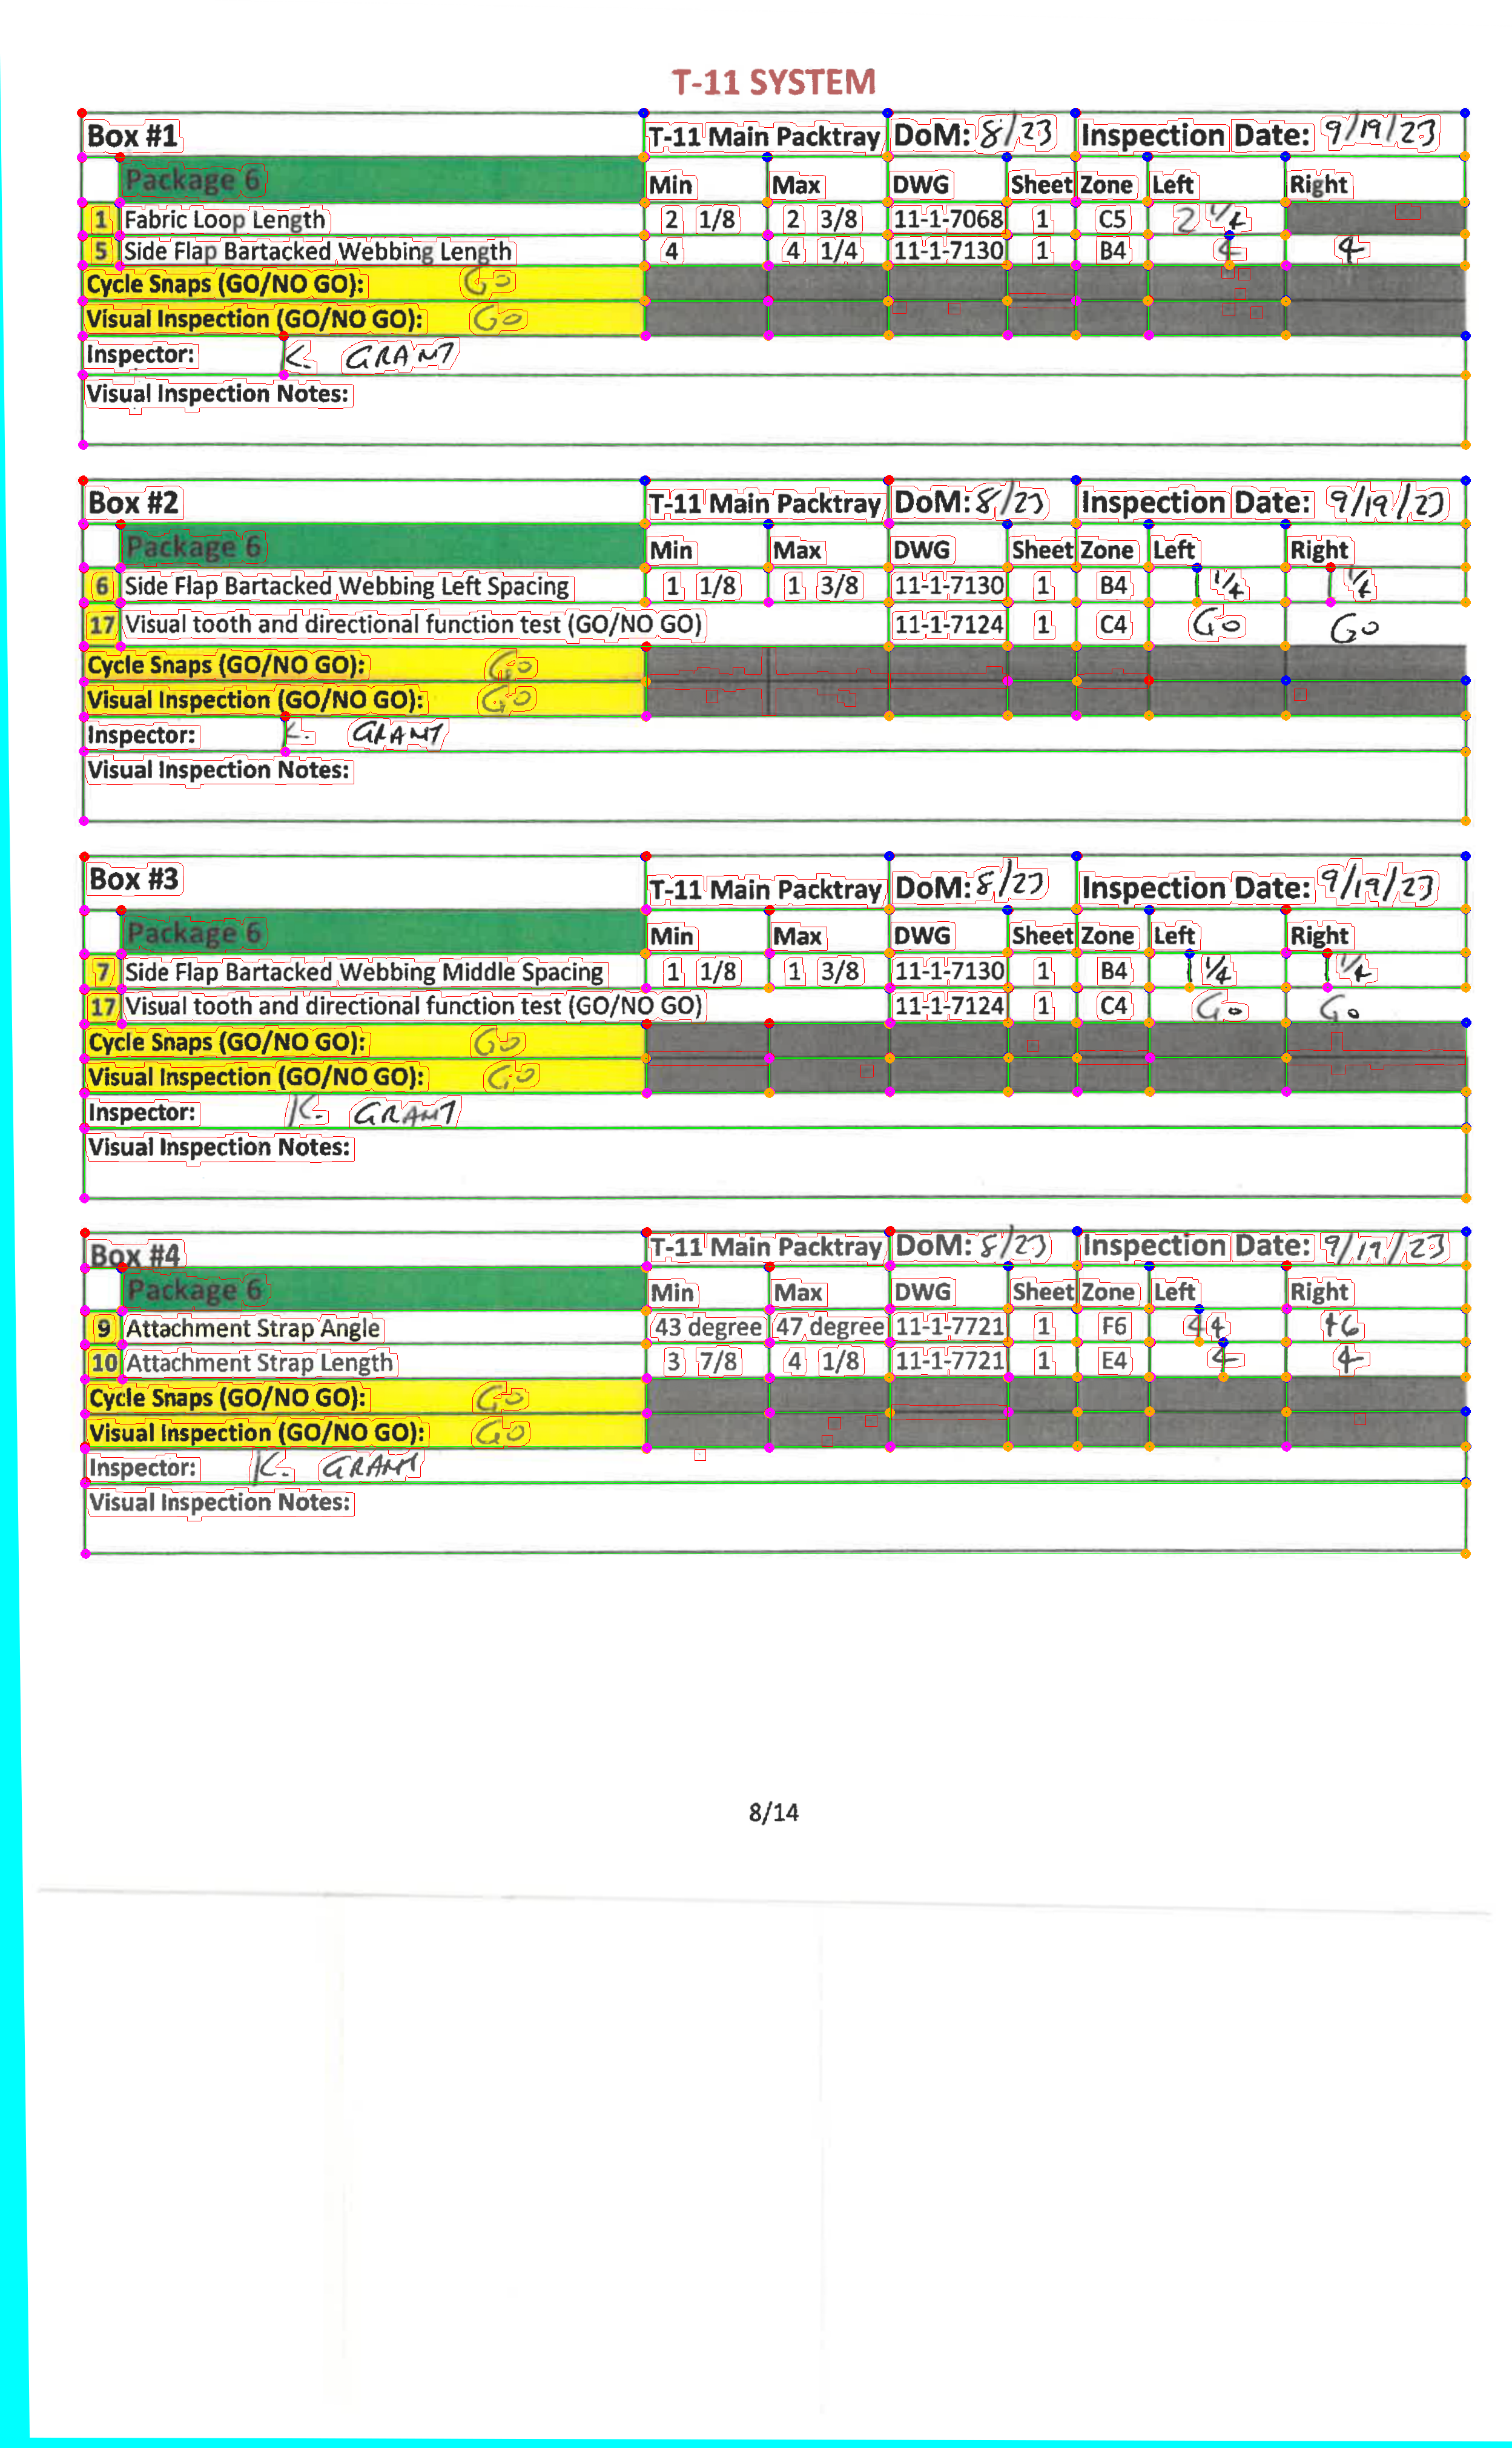 T-11 SYSTEM
Box #1 T-11 Main Packtray DoM: 8/23 Inspection Date: 9/19/23
Package 6 Min Max DWG Sheet Zone Left Right
1 Fabric Loop Length 2 1/8 2 3/8 11-1-7068 1 C5 2 1/4
5 Side Flap Bartacked Webbing Length 4 4 1/4 11-1-7130 1 B4 4 4
Cycle Snaps (GO/NO GO): Go
Visual Inspection (GO/NO GO): Go
Inspector: K. GRANT
Visual Inspection Notes:
Box #2 T-11 Main Packtray DoM: 8/23 Inspection Date: 9/19/23
Package 6 Min Max DWG Sheet Zone Left Right
6 Side Flap Bartacked Webbing Left Spacing 1 1/8 1 3/8 11-1-7130 1 B4 1 1/4 1 1/4
17 Visual tooth and directional function test (GO/NO GO) 11-1-7124 1 C4 Go Go
Cycle Snaps (GO/NO GO): Go
Visual Inspection (GO/NO GO): Go
Inspector: K. GRANT
Visual Inspection Notes:
Box #3 T-11 Main Packtray DoM: 8/23 Inspection Date: 9/19/23
Package 6 Min Max DWG Sheet Zone Left Right
7 Side Flap Bartacked Webbing Middle Spacing 1 1/8 1 3/8 11-1-7130 1 B4 1 1/4 1 1/4
17 Visual tooth and directional function test (GO/NO GO) 11-1-7124 1 C4 Go Go
Cycle Snaps (GO/NO GO): Go
Visual Inspection (GO/NO GO): Go
Inspector: K. GRANT
Visual Inspection Notes:
Box #4 T-11 Main Packtray DoM: 8/23 Inspection Date: 9/19/23
Package 6 Min Max DWG Sheet Zone Left Right
9 Attachment Strap Angle 43 degree 47 degree 11-1-7721 1 F6 44 46
10 Attachment Strap Length 3 7/8 4 1/8 11-1-7721 1 E4 4 4
Cycle Snaps (GO/NO GO): Go
Visual Inspection (GO/NO GO): Go
Inspector: K. GRANT
Visual Inspection Notes:
8/14